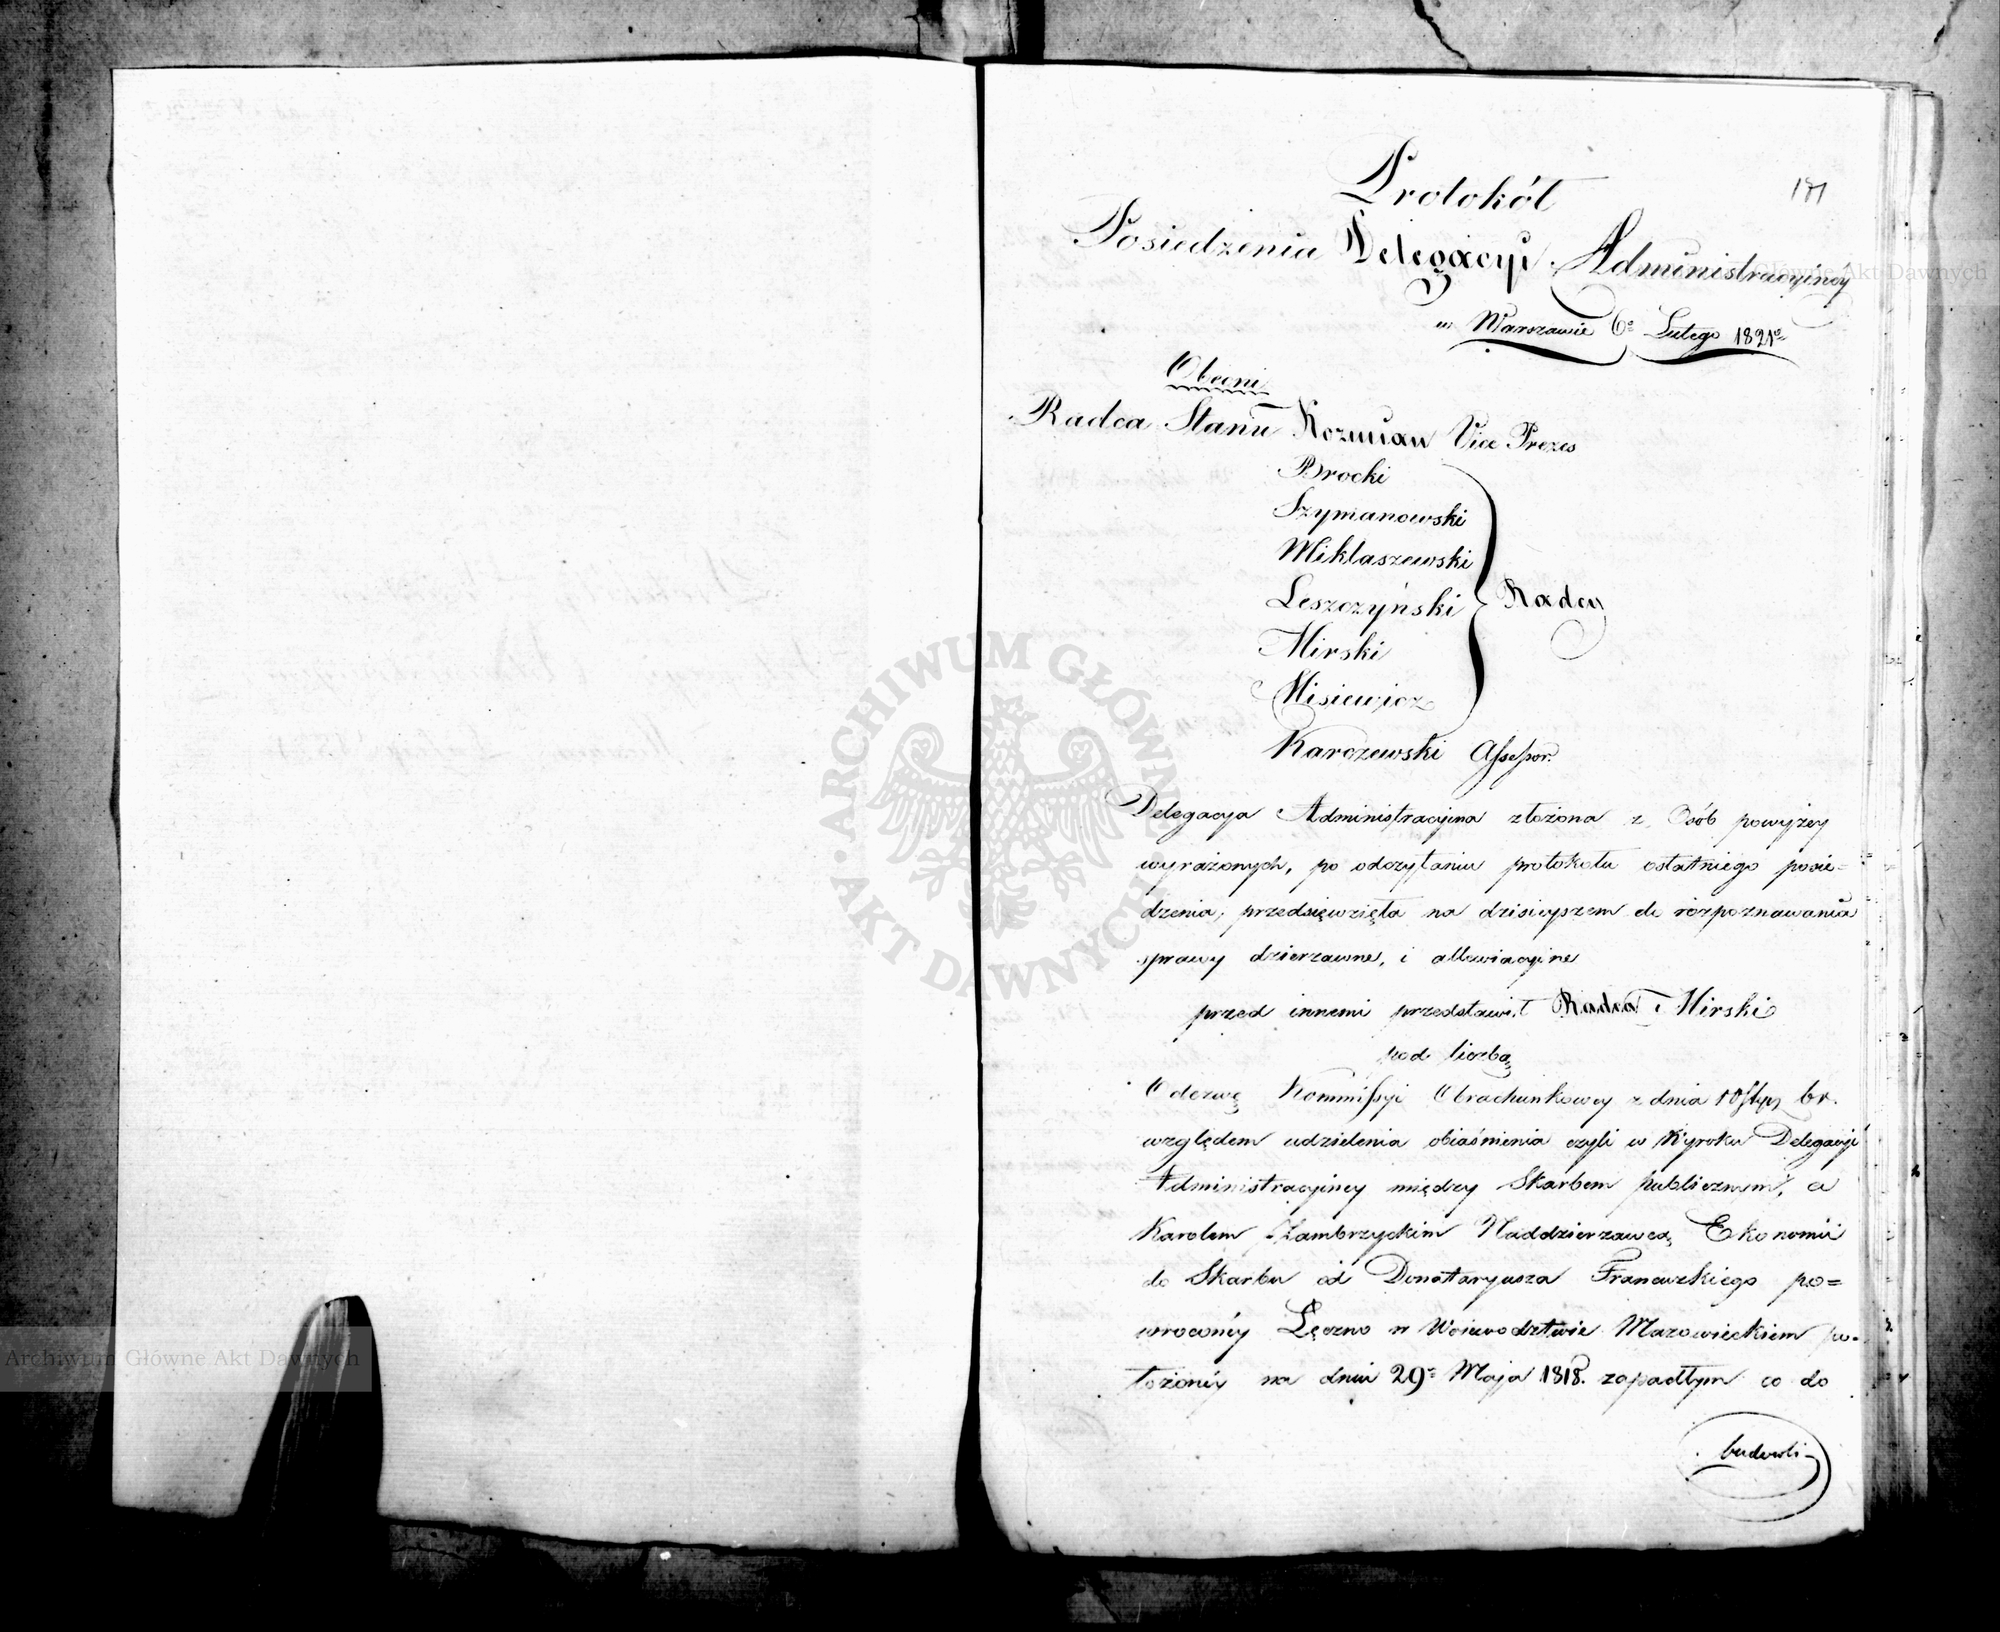 181
Protokół
Posiedzenia Delegacyi Administracyinéy
w Warszawie 6º Lutego 1821º
Obecni
Radca Stanu Kozmian Vice Prezes
Brocki
Szymanowski
Miklaszewski
Leszczyński
Radcy
Mirski
Misiewicz
Karczewski Assessor.
Delegacya Administracyina złożona z Osób powyżey
wyrażonych, po odczytaniu protokołu ostatniego posie=
dzenia, przedsięwzięła na dzisieyszem do rozpoznawania
sprawy dzierzawne, i allewiacyine
przed innemi przedstawił Radca Mirski
pod liczbą
Odezwę Kommissyi Obrachunkowey z dnia 10 Stycz br.
względem udzielenia obiaśnienia czyli w Wyroku Delegacyi
Administracyiney między Skarbem publicznym, a
Karolem Zambrzyckim Naddzierzawcą Ekonomii
do Skarbu od Donataryusza Francuzkiego po=
wrocónéy Łęczno w Woiewodztwie Mazowieckiem po=
łożonéy na dniu 29º Maja 1818. zapadłym co do
budowli
Archiwum Główne Akt Dawnych
Archiwum Główne Akt Dawnych
ARCHIWUM GŁÓWNE AKT DAWNYCH